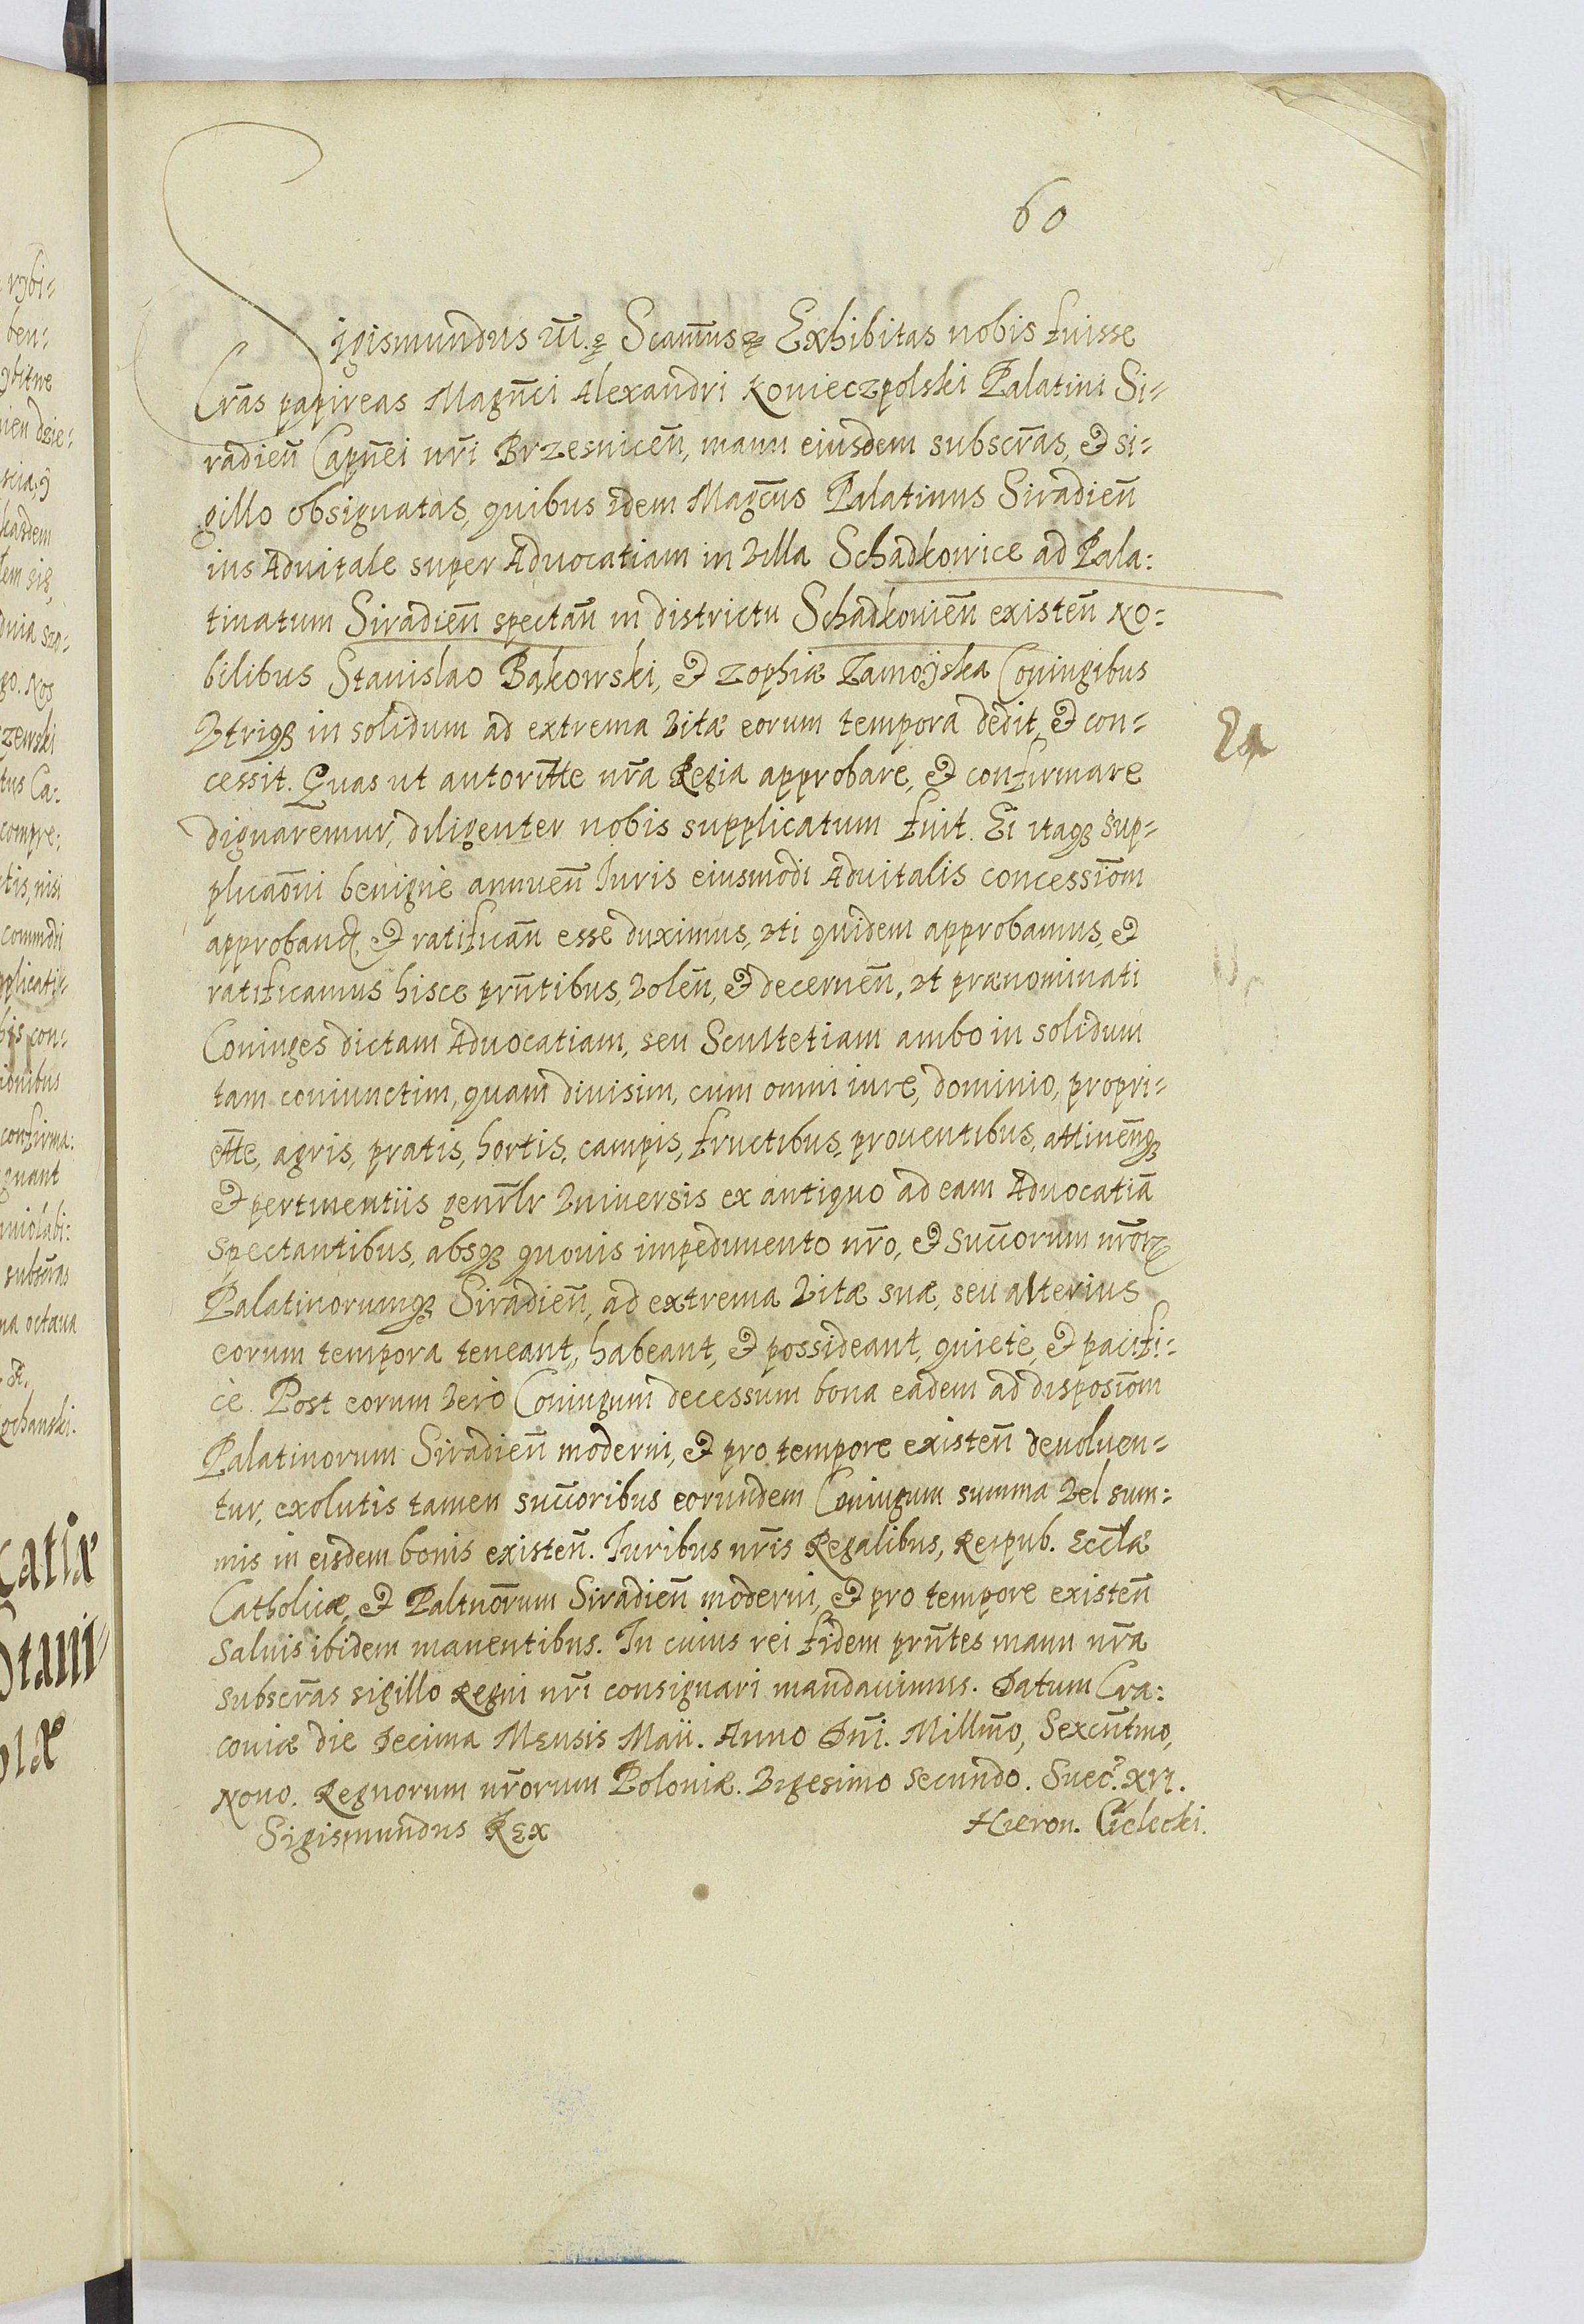 60
Sigismundus III. etc. Scām̄us etc. Exhibitas nobis fuisse
Lrās papireas Magn̄ci Alexandri Konieczpolski Palatini Si-
radien̄ Capn̄ei nr̄i Brzesnicen̄, manu eiusdem subscr̄as, et si-
gillo obsignatas, quibus idem Maḡcus Palatinus Siradien̄
ius Advitale super Advocatiam in villa Schadkowice ad Pala:
tinatum Siradien̄ spectan̄ in districtu Schadkovien̄ existen̄ No:
bilibus Stanislao Bąkowski, et Zophiæ Zamoÿska Coniugibus
Vtriqȝ in solidum ad extrema vitæ eorum tempora dedit, et con-
cessit. Quas ut autorit̄te nr̄a Regia approbare, et confirmare
dignaremur, diligenter nobis supplicatum fuit. Ei itaqȝ sup-
plicaōni benignè annuen̄ Iuris eiusmodi Advitalis concessiōm
approband. et ratifican̄ esse duximus, uti quidem approbamus, et
ratificamus hisce prn̄tibus, volen̄, et decernen̄, ut prænominati
Coniuges dictam Advocatiam, seu Scultetiam ambo in solidum
tam coniunctim, quam divisim, cum omni iure, dominio, propri-
et̄te, agris, pratis, hortis, campis, fructibus, proventibus, attinen̄qȝ
et pertinentiis genr̄lr vniversis ex antiquo ad eam Advocatiā
spectantibus, absqȝ quovis impedimento nr̄o, et succ̄orum nr̄orꝝ
Palatinorumqȝ Siradien̄, ad extrema vitæ suæ, seu alterius
eorum tempora teneant, habeant, et possideant, quietè, et pacifi-
cè. Post eorum verò Coniugum decessum bona eadem ad disposiōm
Palatinorum Siradien̄ moderni, et pro tempore existen̄ devolven-
tur, exolutis tamen succ̄oribus eorundem Coniugum summa vel sum:
mis in eisdem bonis existen̄. Iuribus nr̄is Regalibus, Reipub. Eccl̄æ
Catholicæ, et Paltinōrum Siradien̄ moderni, et pro tempore existen̄
salvis ibidem manentibus. In cuius rei fidem prn̄tes manu nr̄a
subscr̄as sigillo Regni nr̄i consignari mandavimus. Datum Cra:
coviæ die Decima Mensis Maii. Anno Dn̄i. Millmō, Sexcn̄tmo,
Nono. Regnorum nr̄orum Poloniæ. Vigesimo Secundo. Suec. XVI.
Sigismundus Rex Hieron. Cielecki.